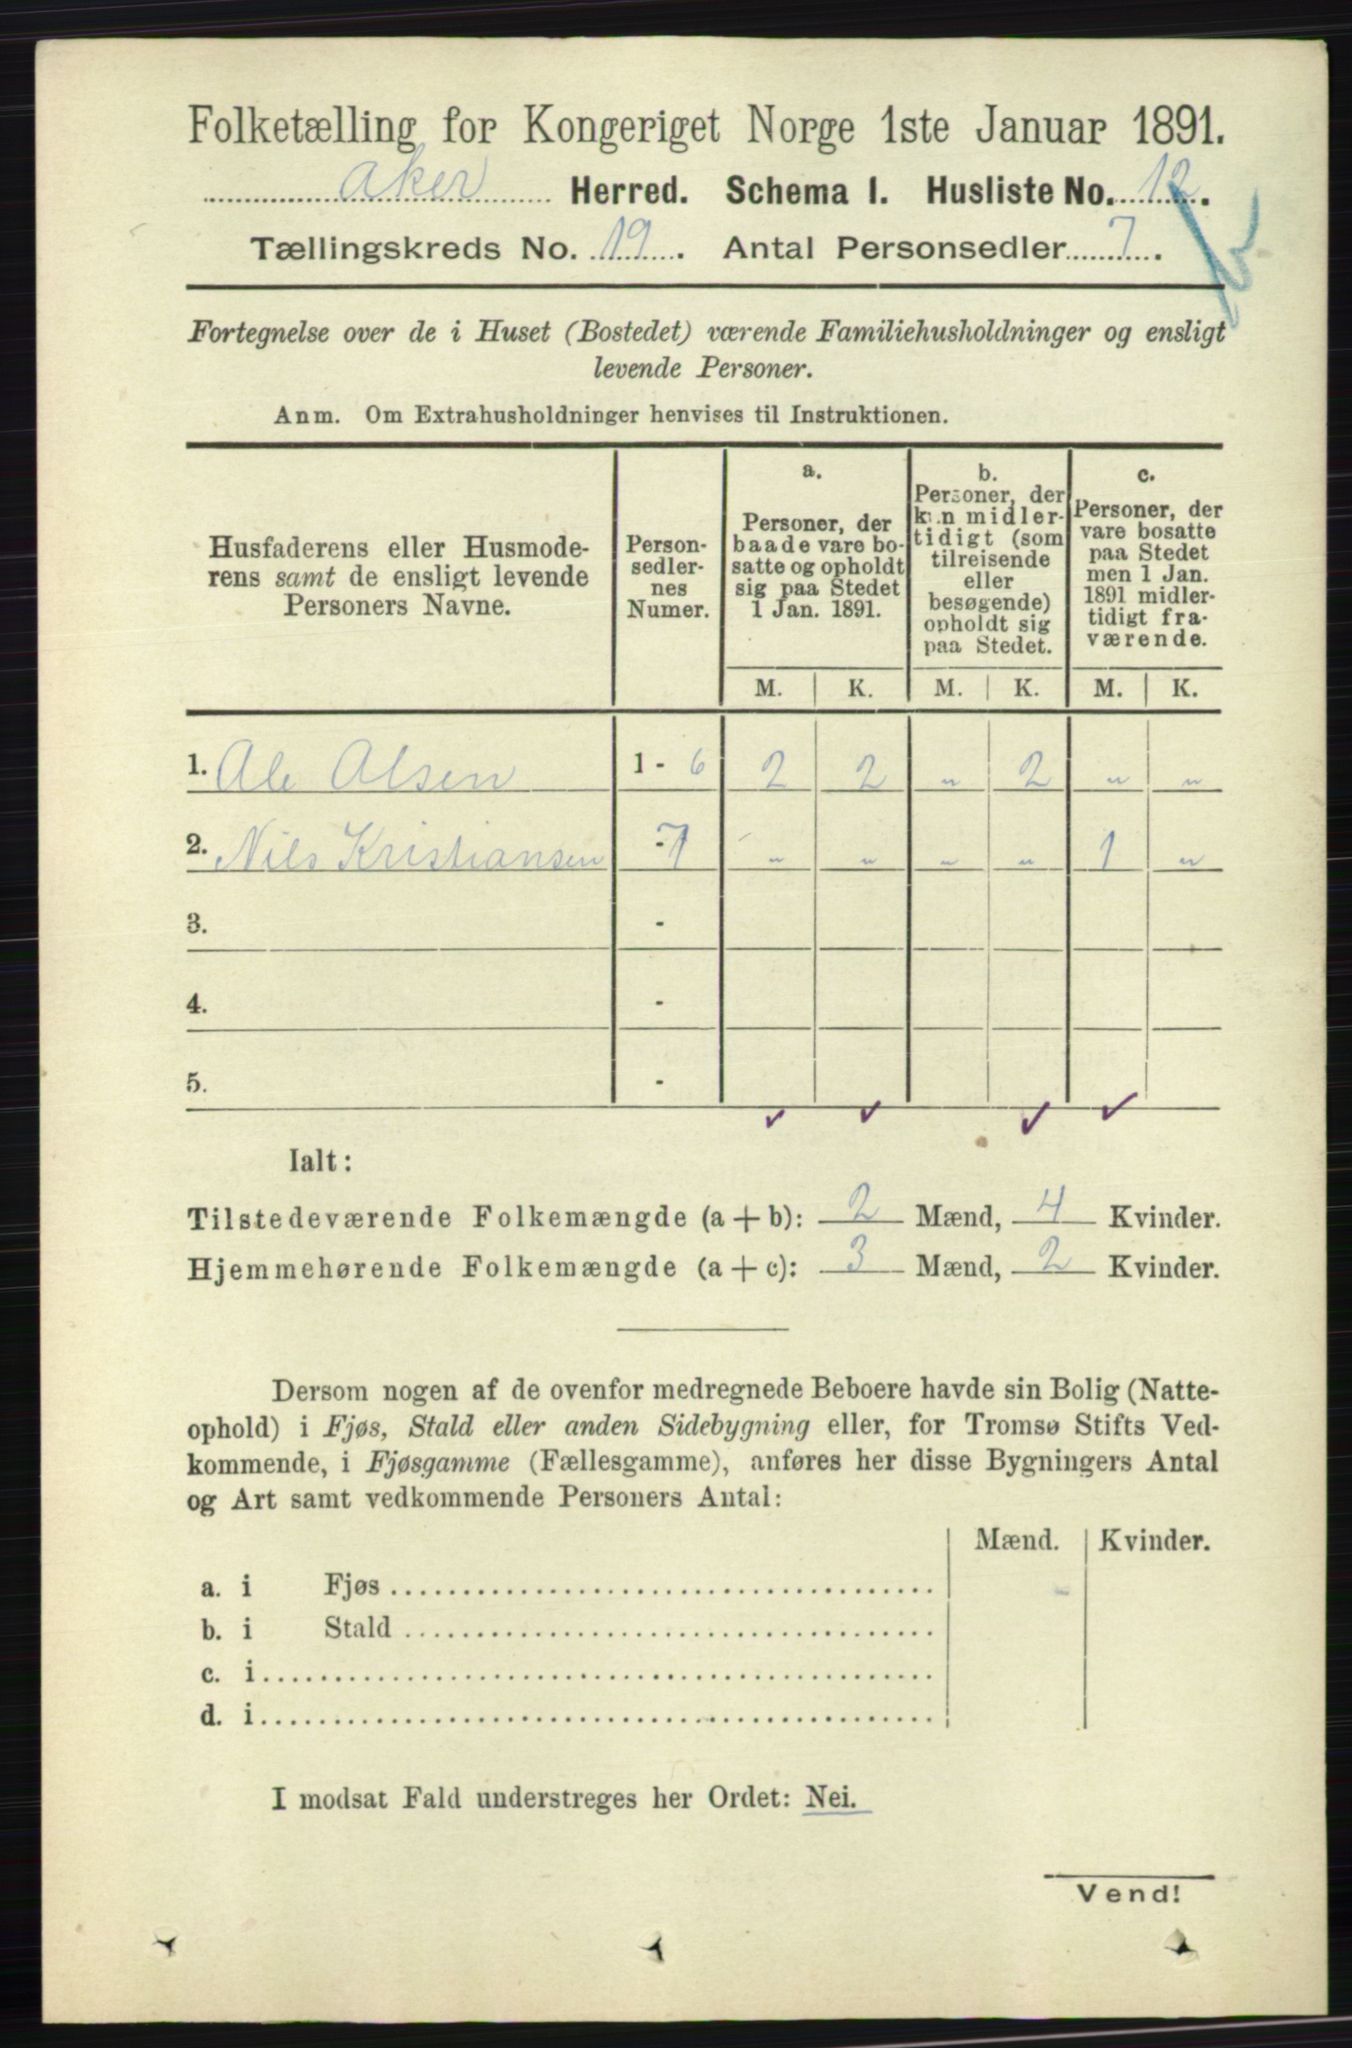 Folketælling for Kongeriget Norge 1ste Januar 1891.
Aker Herred. Schema I. Husliste No. 12.
Tællingskreds No. 19. Antal Personsedler 7.
Fortegnelse over de i Huset (Bostedet) værende Familiehusholdninger og ensligt
levende Personer.
Anm. Om Extrahusholdninger henvises til Instruktionen.
Husfaderens eller Husmode-
rens samt de ensligt levende
Personers Navne.
Person-
sedler-
nes
Numer.
a.
Personer, der
baade vare bo-
satte og opholdt
sig paa Stedet
1 Jan. 1891.
b.
Personer, der
kun midler-
tidigt (som
tilreisende
eller
besøgende)
opholdt sig
paa Stedet.
c.
Personer, der
vare bosatte
paa Stedet
men 1 Jan.
1891 midler-
tidigt fra-
værende.
M. K. M. K. M. K.
1. Ole Olsen 1 - 6 2 2 " 2 " "
2. Nils Kristiansen - 7 " " " " 1 "
3. -
4. -
5. -
Ialt:
Tilstedeværende Folkemængde (a + b): 2 Mænd, 4 Kvinder.
Hjemmehørende Folkemængde (a + c): 3 Mænd, 2 Kvinder.
Dersom nogen af de ovenfor medregnede Beboere havde sin Bolig (Natte-
ophold) i Fjøs, Stald eller anden Sidebygning eller, for Tromsø Stifts Ved-
kommende, i Fjøsgamme (Fællesgamme), anføres her disse Bygningers Antal
og Art samt vedkommende Personers Antal:
Mænd. Kvinder.
a. i Fjøs
b. i Stald
c. i
d. i
I modsat Fald understreges her Ordet: Nei.
Vend!